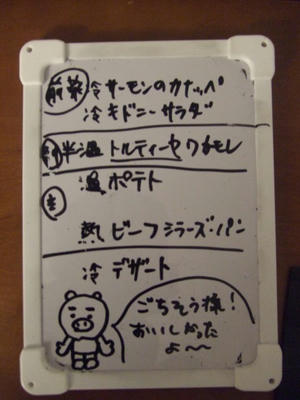 前菜 冷 サーモンのカナッペ
冷 キドニーサラダ
半温 トルティーヤワカモレ
温 ポテト
主
熱 ビーフシチーズ・パン
冷 デザート
ごちそう様!
おいしかった
よ〜〜